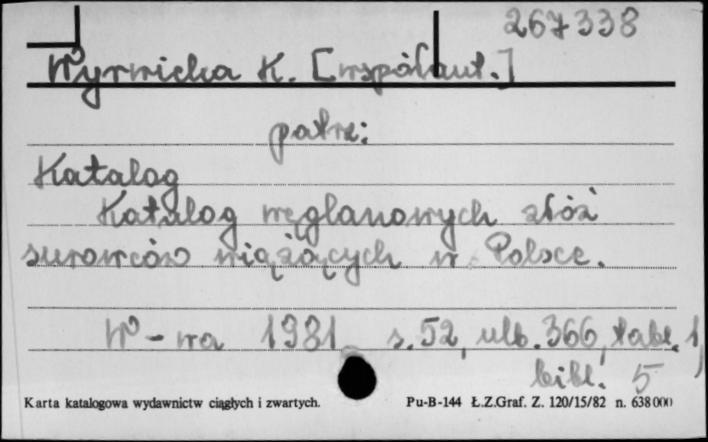 267338
Wyrwicka K. [współaut.]
patrz:
Katalog
Katalog węglanowych złóż
surowców wiążących w Polsce.
W-wa 1981 s. 52, ulb. 366, tabl. 1,
bibl. 5
Karta katalogowa wydawnictw ciągłych i zwartych. Pu-B-144 Ł.Z.Graf. Z. 120/15/82 n. 638000